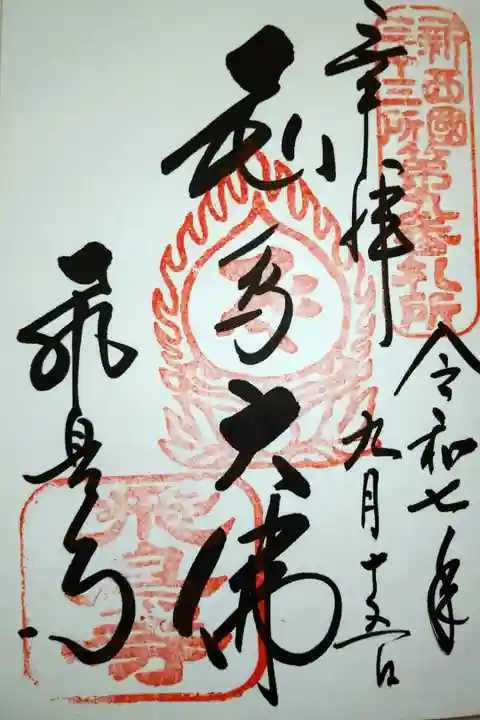 新西國
三十三所第九番札所
奉拝
令和七年
九月十五日
飛鳥大佛
飛鳥寺
飛鳥寺